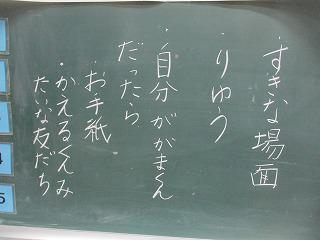 ・すきな場面
・りゆう
・自分ががまくん
だったら
・お手紙
・かえるくんみ
たいな友だち
4
5